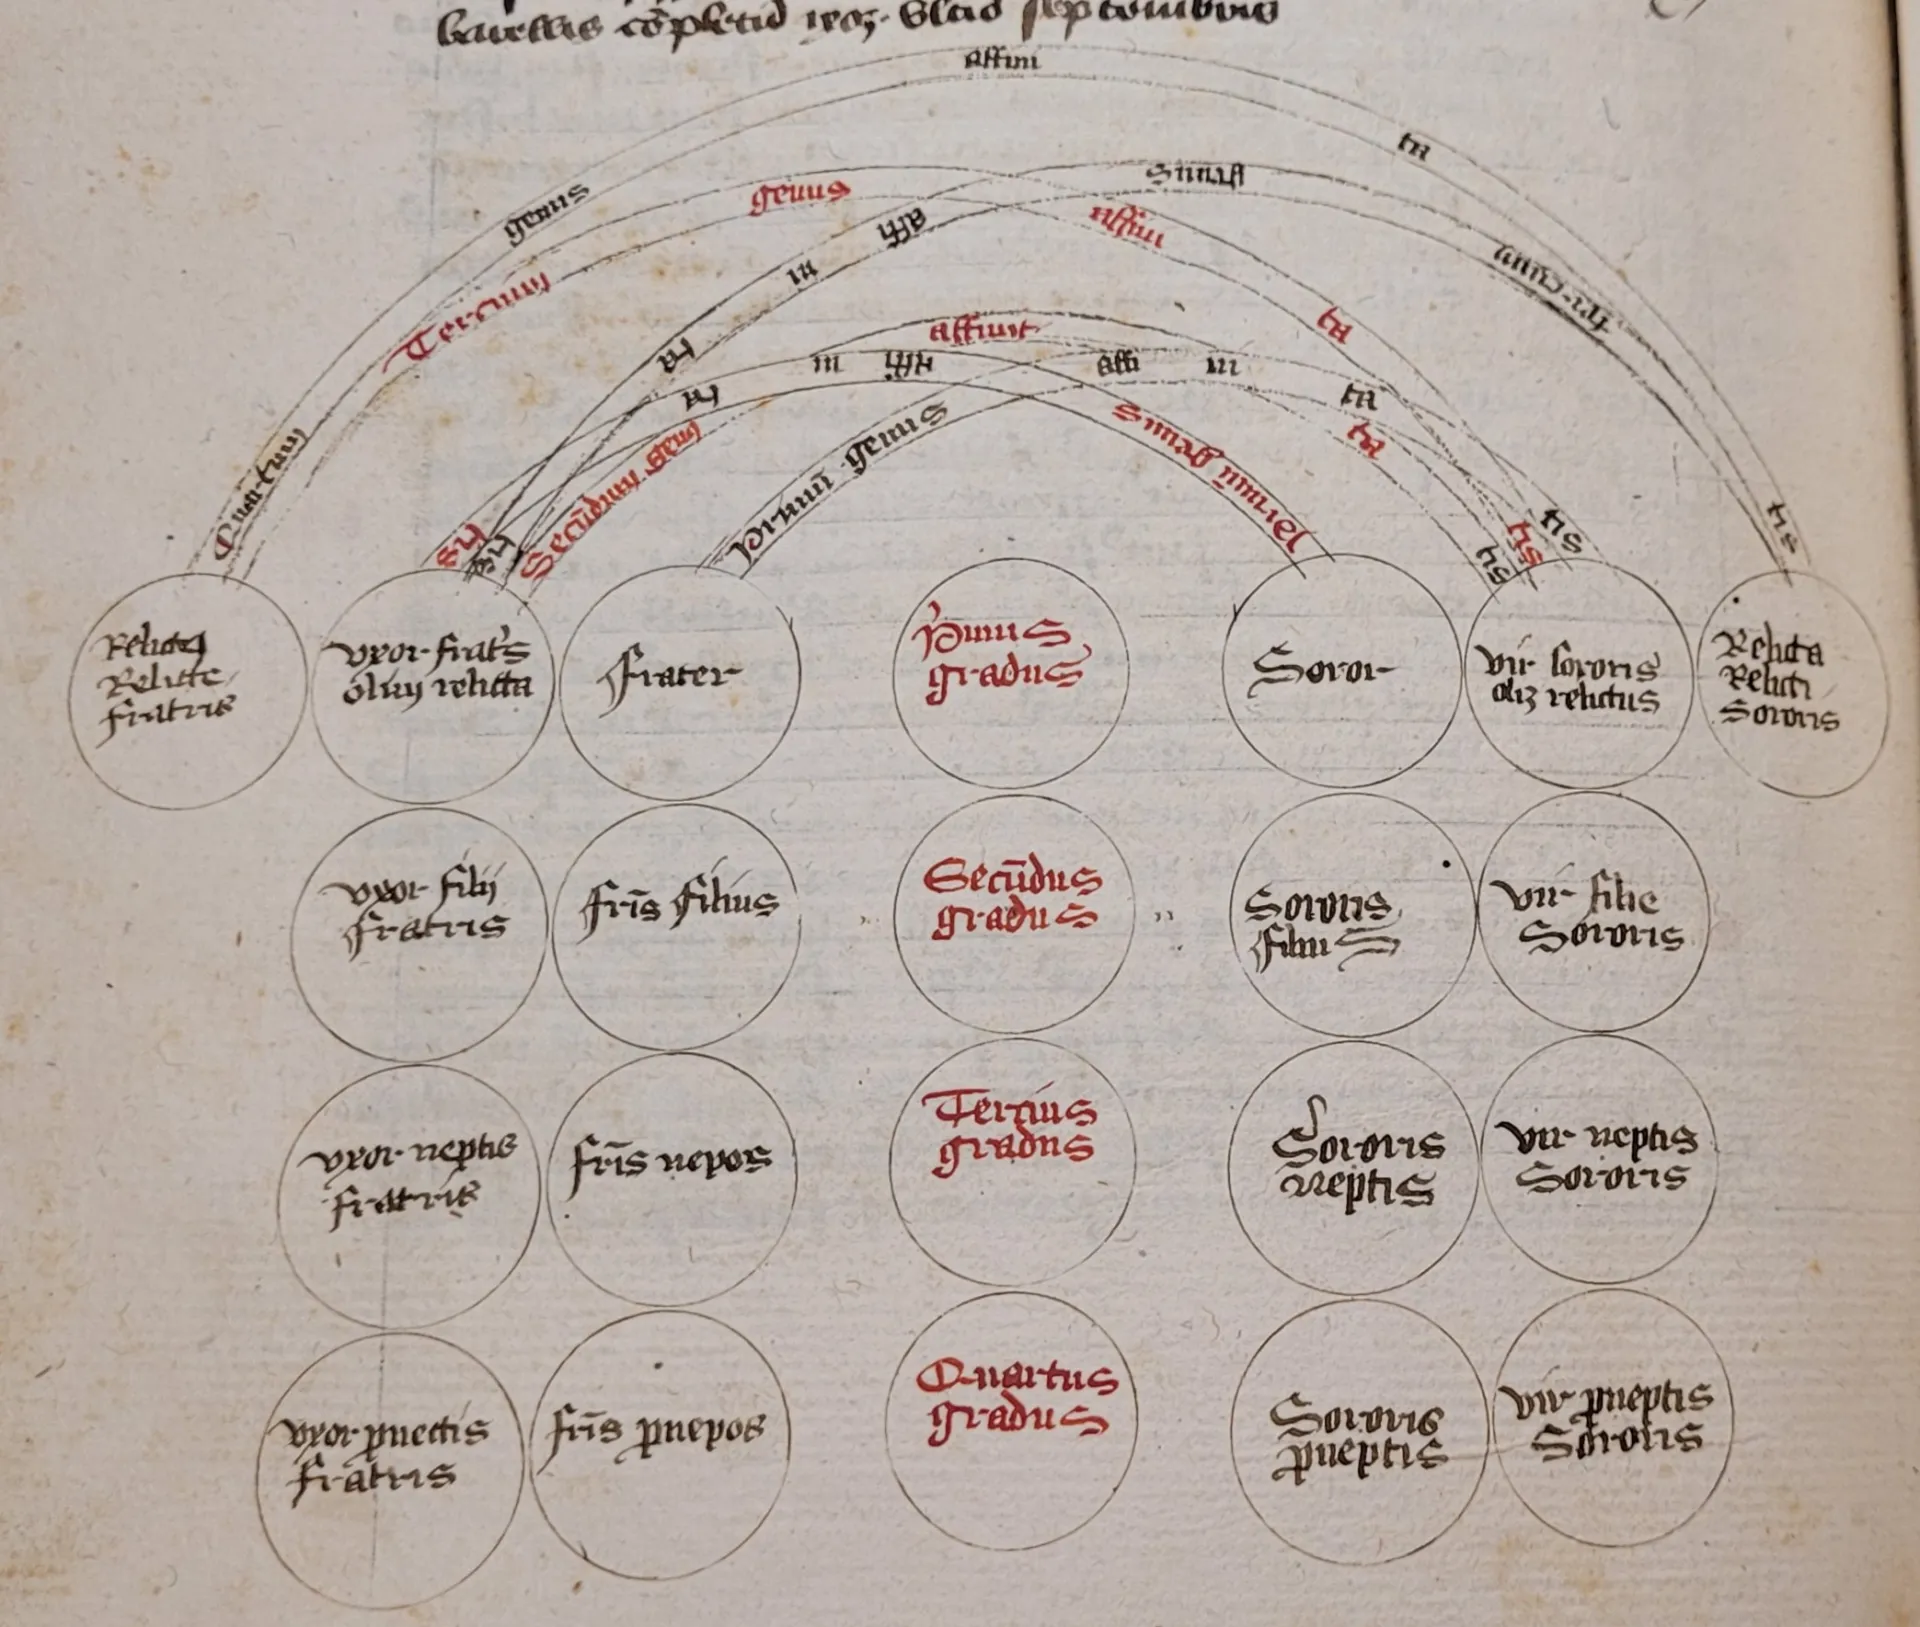 affini
ta
genus
genus
affi
affini
ni
Tercium
ta
ta
affinit
ni
affi
affi
ni
ta
ta
Secūdum gen9
Primū genus
ta
Quartum
tis
tis
tis
tis
Relictus
Relicte
fratris
vxor fratˀs
olim relicta
frater
Primus
gradus
Soror
vir sororis
relictus
Relicta
Relicti
Sororis
vxor filij
fratris
fr̄is filius
Secūdus
gradus
Sororis
filius
vir filie
Sororis
vxor neptis
fratris
fr̄is nepos
Tercius
gradus
Sororis
neptis
vir neptis
Sororis
vxor ꝓneptis
fratris
fr̄is ꝓnepos
Quartus
gradus
Sororis
ꝓneptis
vir ꝓneptis
Sororis